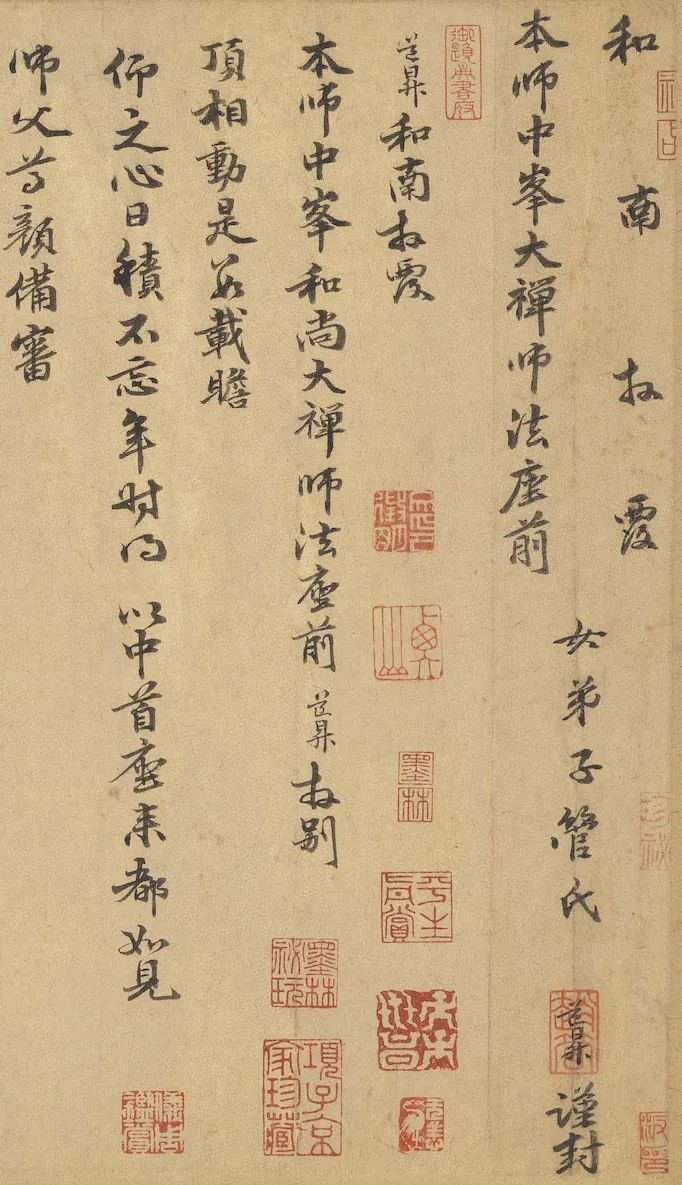 和南拜覆
本师中峯大禅师法座前
女弟子管氏道昇謹封
道昇和南拜覆
本师中峯和尚大禅师法座前道昇拜别
頂相動是數載瞻
仰之心日積不忘年时得以中首座来都如見
师父尊顔備審
墨林
平生真賞
墨林祕玩
項子京家珍藏